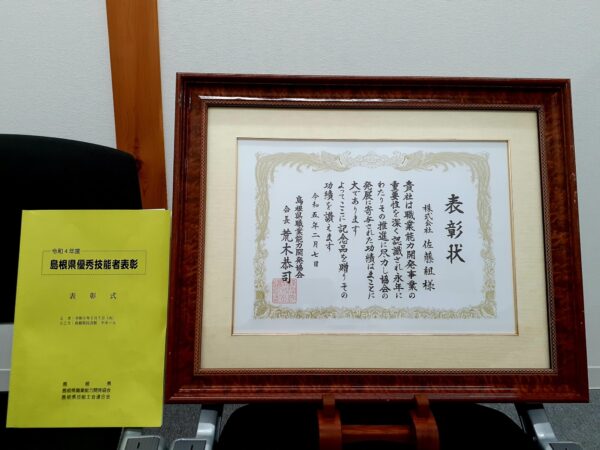 令和4年度
島根県優秀技能者表彰
表彰式
島根県
島根県職業能力開発協会
島根県技能士会連合会
表彰状
株式会社 佐藤組 様
貴社は職業能力開発事業の
重要性を深く認識され永年に
わたりその推進に尽力し協会の
発展に寄与された功績はまことに
大であります
よってここに記念品を贈りその
功績を讃えます
令和五年二月七日
島根県職業能力開発協会
会長 荒木恭司